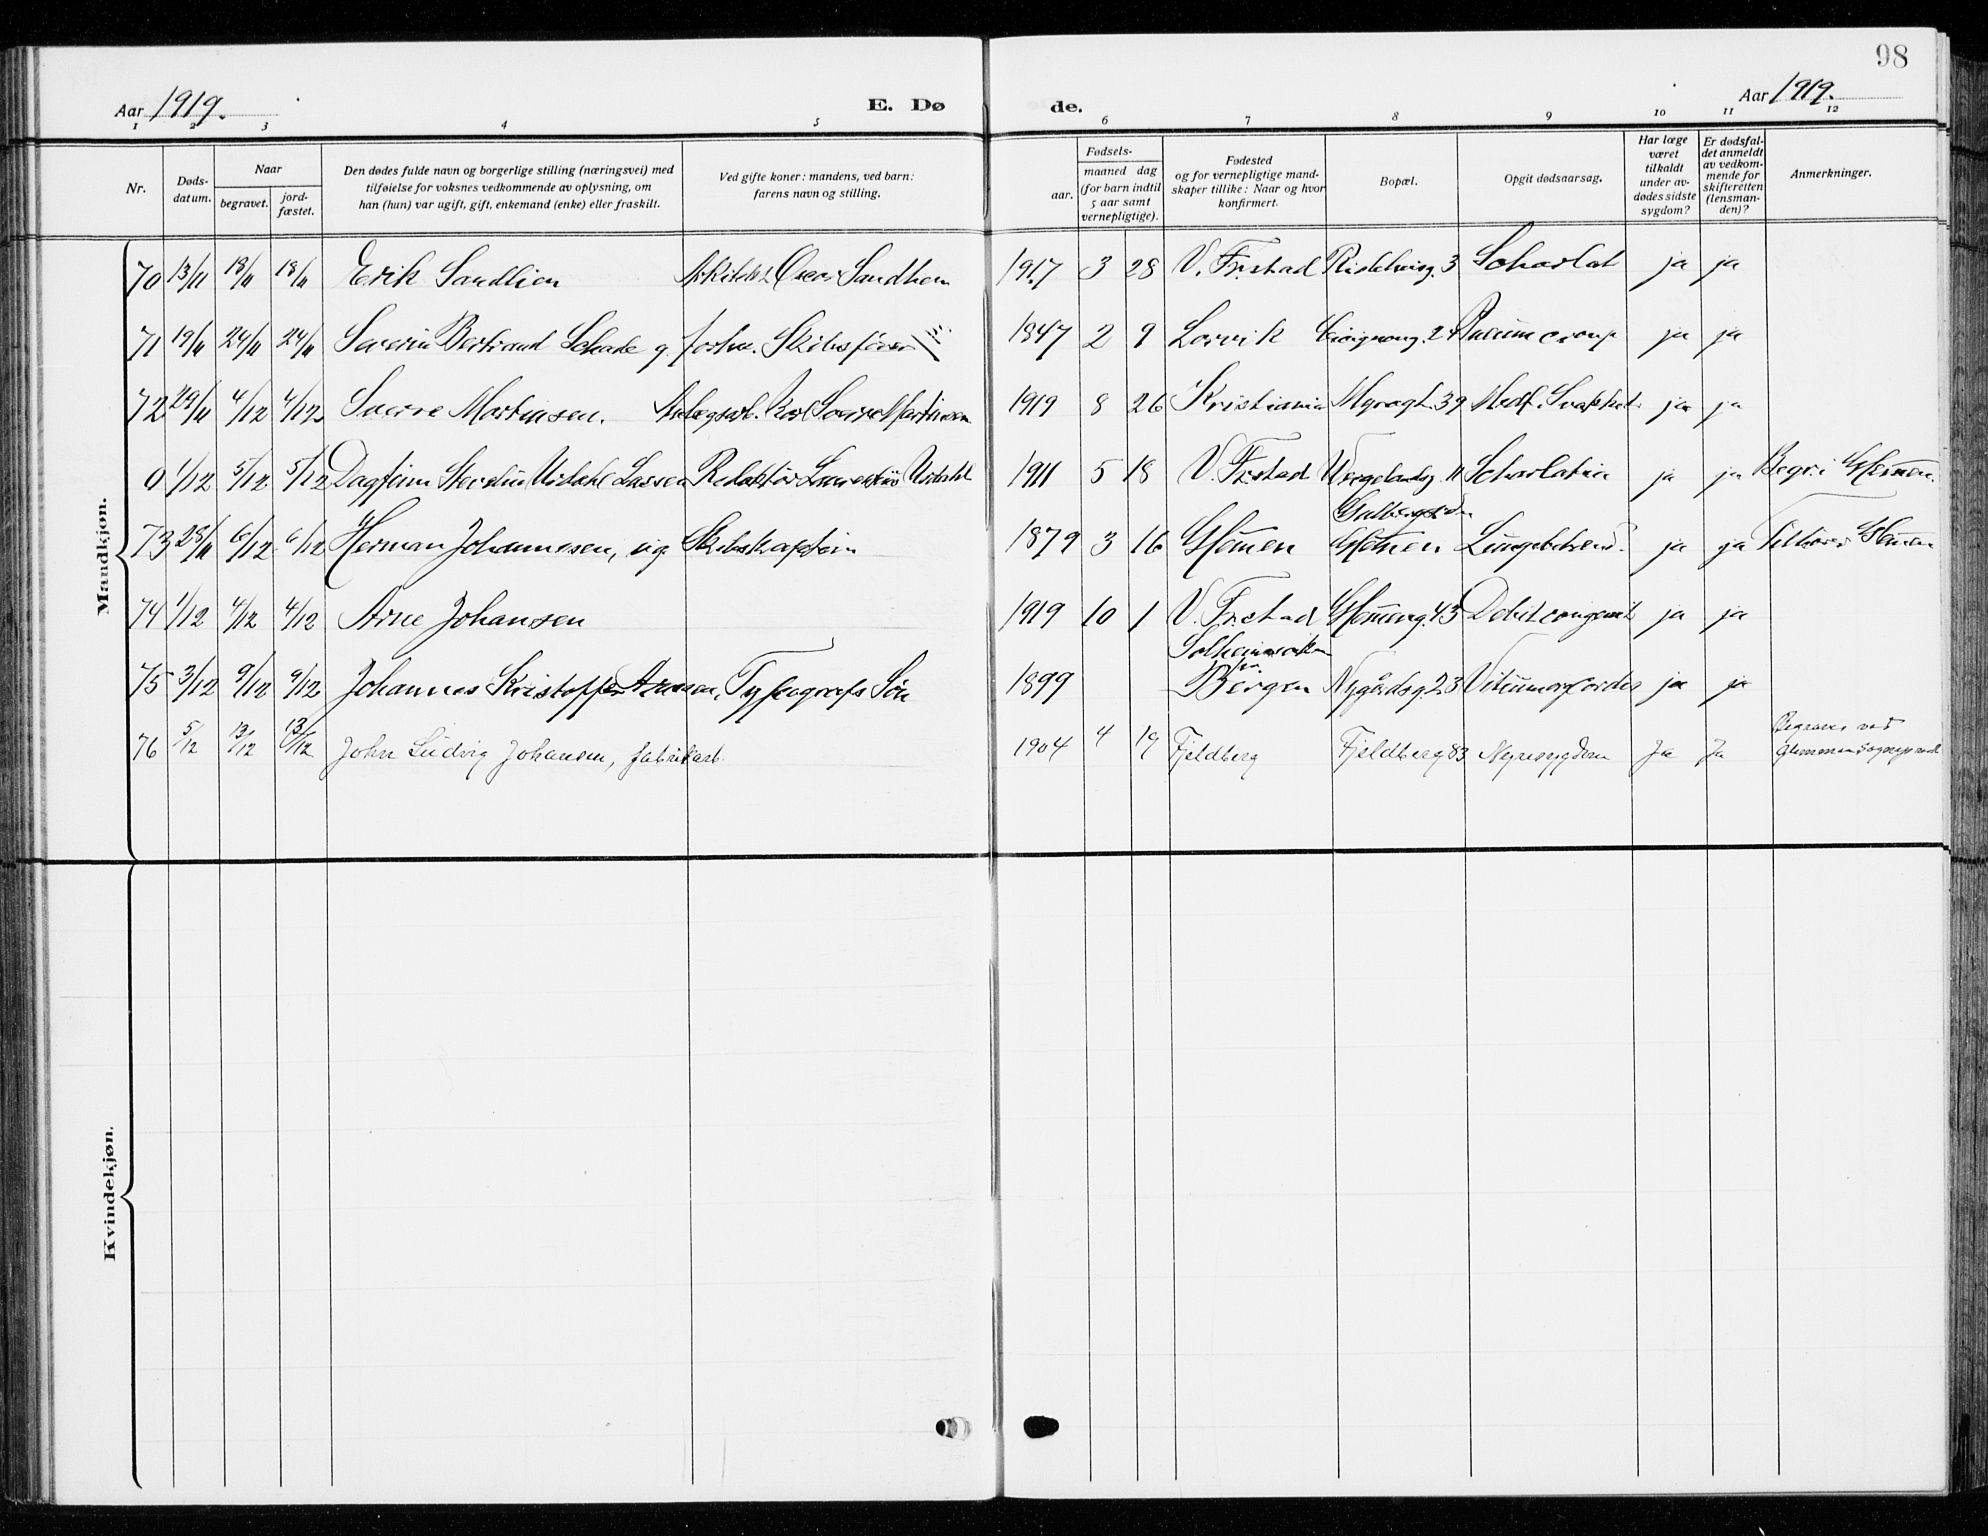 98
Aar 1919. E. Dø de. Aar 1919.
1 2 3 4 5 6 7 8 9 10 11 12
Nr.
Døds-
datum.
Naar
begravet.
jord-
fæstet.
Den dødes fulde navn og borgerlige stilling (næringsvei) med
tilføielse for voksnes vedkommende av oplysning, om
han (hun) var ugift, gift, enkemand (enke) eller fraskilt.
Ved gifte koner: mandens, ved barn:
farens navn og stilling.
Fødsels-
aar.
maaned dag
(for barn indtil
5 aar samt
vernepligtige).
Fødested
og for vernepligtige mand-
skaper tillike: Naar og hvor
konfirmert.
Bopæl.
Opgit dødsaarsag.
Har læge
været
tilkaldt
under av-
dødes sidste
sygdom?
Er dødsfal-
det anmeldt
av vedkom-
mende for
skifteretten
(lensman-
den)?
Anmerkninger.
Mandkjøn.
70 13/11 18/11 18/11 Erik Sandlien Sandlien 1917 3 28 V. Fr.stad 3 Scharlat ja ja
71 19/11 24/11 24/11 Severin Bertrand Schade g. forhv. Skibsfører 1847 2 9 Larvik 24 croup ja ja
72 29/11 4/12 4/12 Sverre Martinsen. Karl Martinsen 1919 8 26 Kristiania Myragt. 39 Medf. Svakhet ja ja
0 1/12 5/12 5/12 Dagfinn Urdahl Lassen Redaktør Laurentius Urdahl 1911 5 18 V. Fr.stad Wergelandsg. 11 Scharlatin ja ja Begr. i Glemmen.
73 28/11 6/12 6/12 Herman Johannesen, ug. Skibskaptein 1879 3 16 Glemmen Glemmen ja ja Tilhører Glemmen
74 1/12 4/12 4/12 Arne Johansen 1919 10 1 V. Fr.stad Glemmeng. 43 Debil. congenit ja ja
75 3/12 9/12 9/12 Johannes Kristoffer Arnesen, Typografs Søn 1899 Solheimsviken
Bergen Nygårdsg. 23 Vitium cordis ja ja
76 5/12 13/12 13/12 John Ludvig Johansen, fabrikarb. 1904 4 19 Fjeldberg Fjeldberg 83 Nyresygdom Ja Ja Begraves ved
Glemmen
Kvindekjøn.